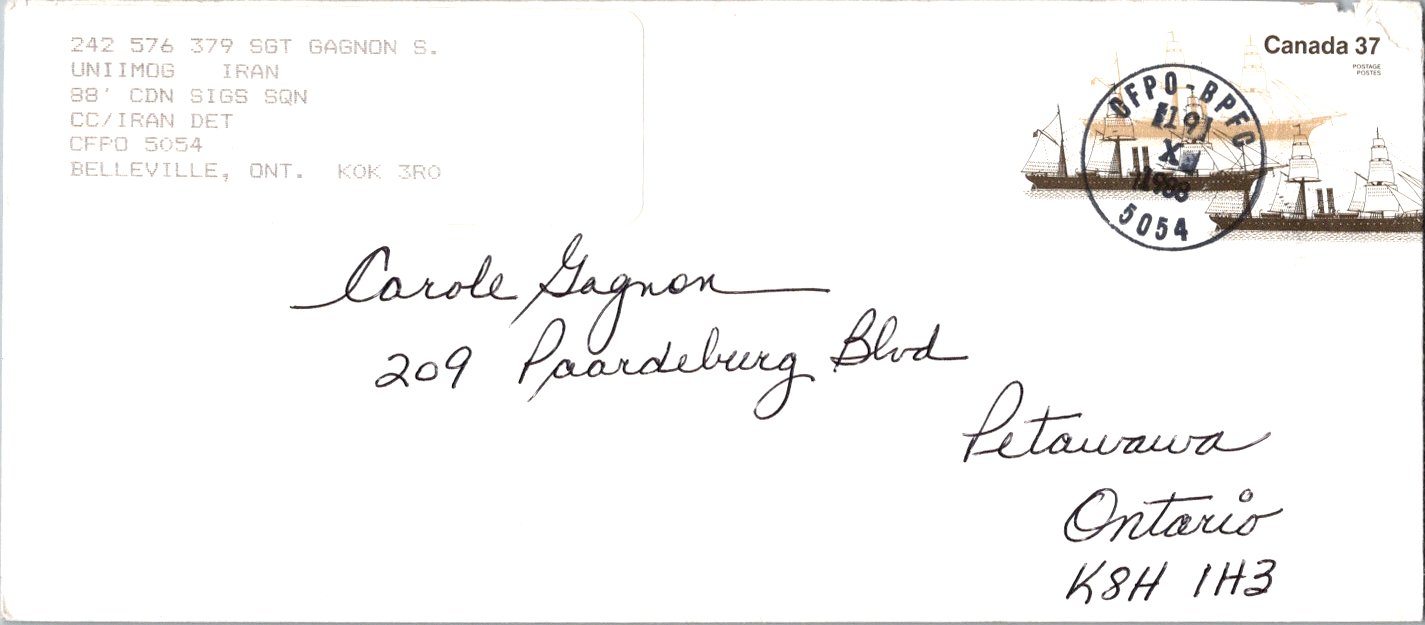 242 576 379 SGT GAGNON S.
UNIIMOG IRAN
88' CDN SIGS SQN
CC/IRAN DET
CFPO 5054
BELLEVILLE, ONT. K0K 3R0
Canada 37
POSTAGE
POSTES
CFPO-BPFC
19
X
1988
5054
Carole Gagnon
209 Paardeburg Blvd
Petawawa
Ontario
K8H 1H3